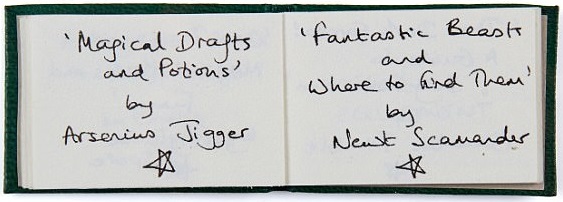 'Magical Drafts
and Potions'
by
Arsenius Jigger
'Fantastic Beasts
and
Where to Find Them'
by
Newt Scamander